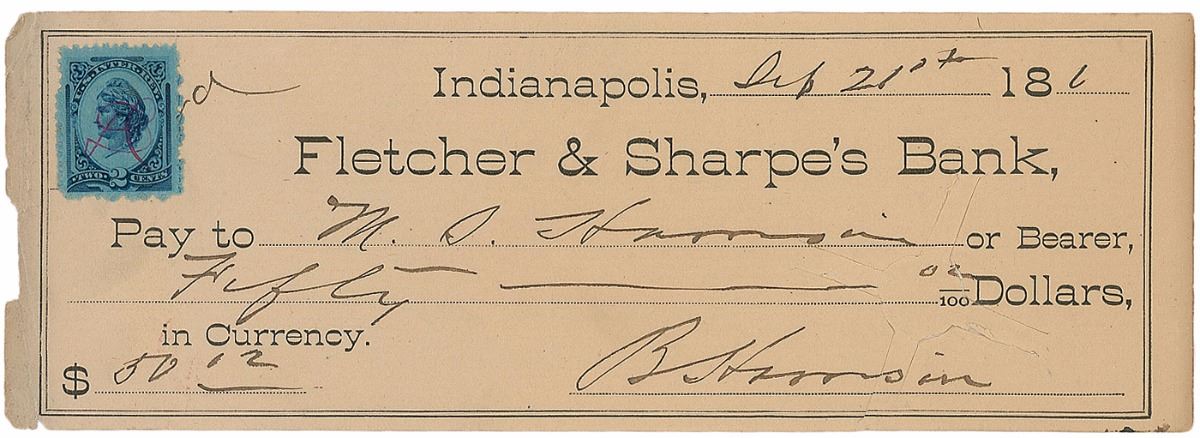 U.S. INTER. REV.
TWO 2 CENTS
Indianapolis, Sep 21st 18 1
Fletcher & Sharpe's Bank,
Pay to M. S. Harrison or Bearer,
Fifty 02/100 Dollars,
in Currency.
$ 50 12
B Harrison